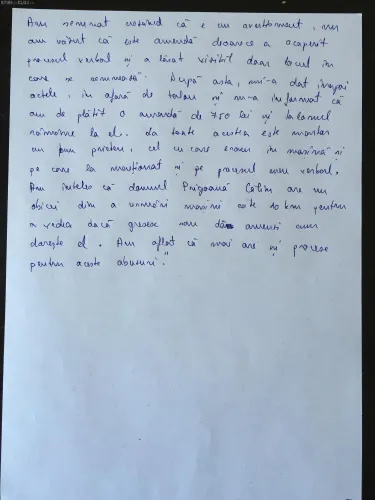 Am semnat crezând că e un avertisment, nu
am văzut că este amendă deoarece a acoperit
procesul verbal și a lăsat vizibil doar locul în
care se semnează. După asta, mi-a dat înapoi
actele, în afară de talon și m-a informat că
am de plătit o amendă de 750 lei și talonul
rămâne la el. La toate acestea este martor
un bun prieten, cel cu care eram în mașină și
pe care l-a menționat și pe procesul meu verbal.
Am înțeles că domnul Prigoană Călin are un
obicei din a urmări mașini câte 10 km pentru
a vedea dacă greșesc sau dă amenzi cum
dorește el. Am aflat că mai are și procese
pentru aceste abuzuri."